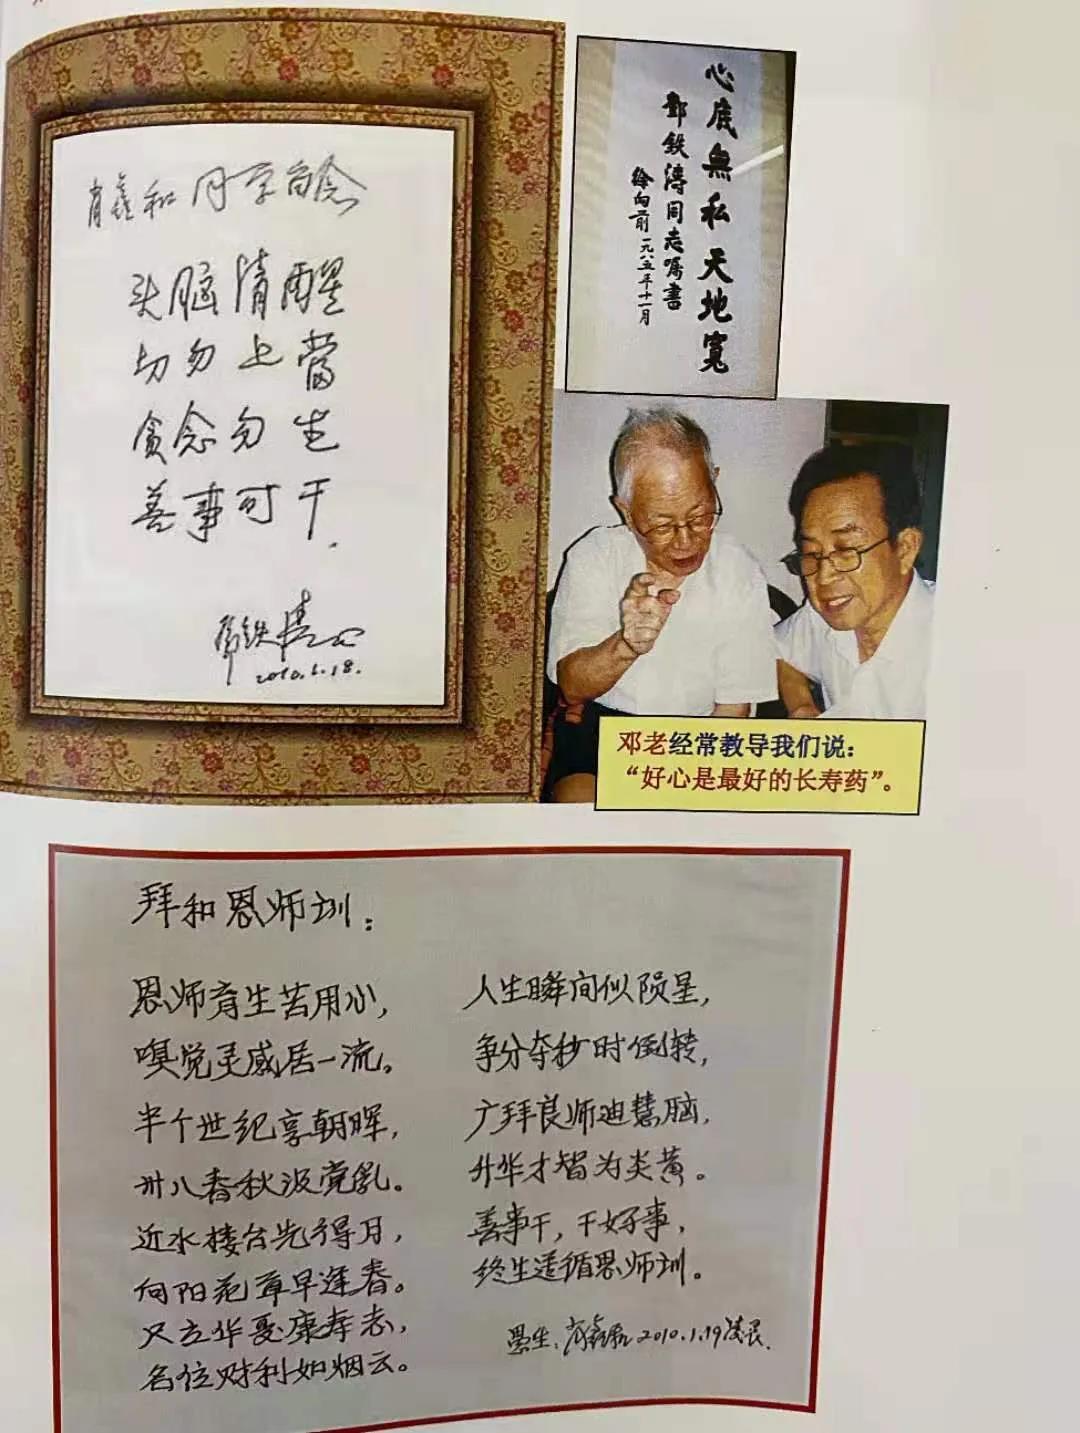 肖鑫和同学留念
头脑清醒
切勿上當
贪念勿生
善事可干.
邓铁涛
2010.1.18.
心底無私天地寬
鄧鉄涛同志嘱書
徐向前一九八五年十一月
邓老经常教导我们说：
“好心是最好的长寿药”。
拜和恩师训：
恩师育生苦用心，
嗅觉灵感居一流。
半个世纪享朝晖，
卅八春秋汲党乳。
近水楼台先得月，
向阳花草早逢春。
只立华夏康寿志，
名位财利如烟云。
人生瞬间似陨星，
争分夺秒时倒转，
广拜良师迪慧脑，
升华才智为炎黄。
善事干，干好事，
终生遵循恩师训。
愚生：肖鑫和2010.1.19凌晨.